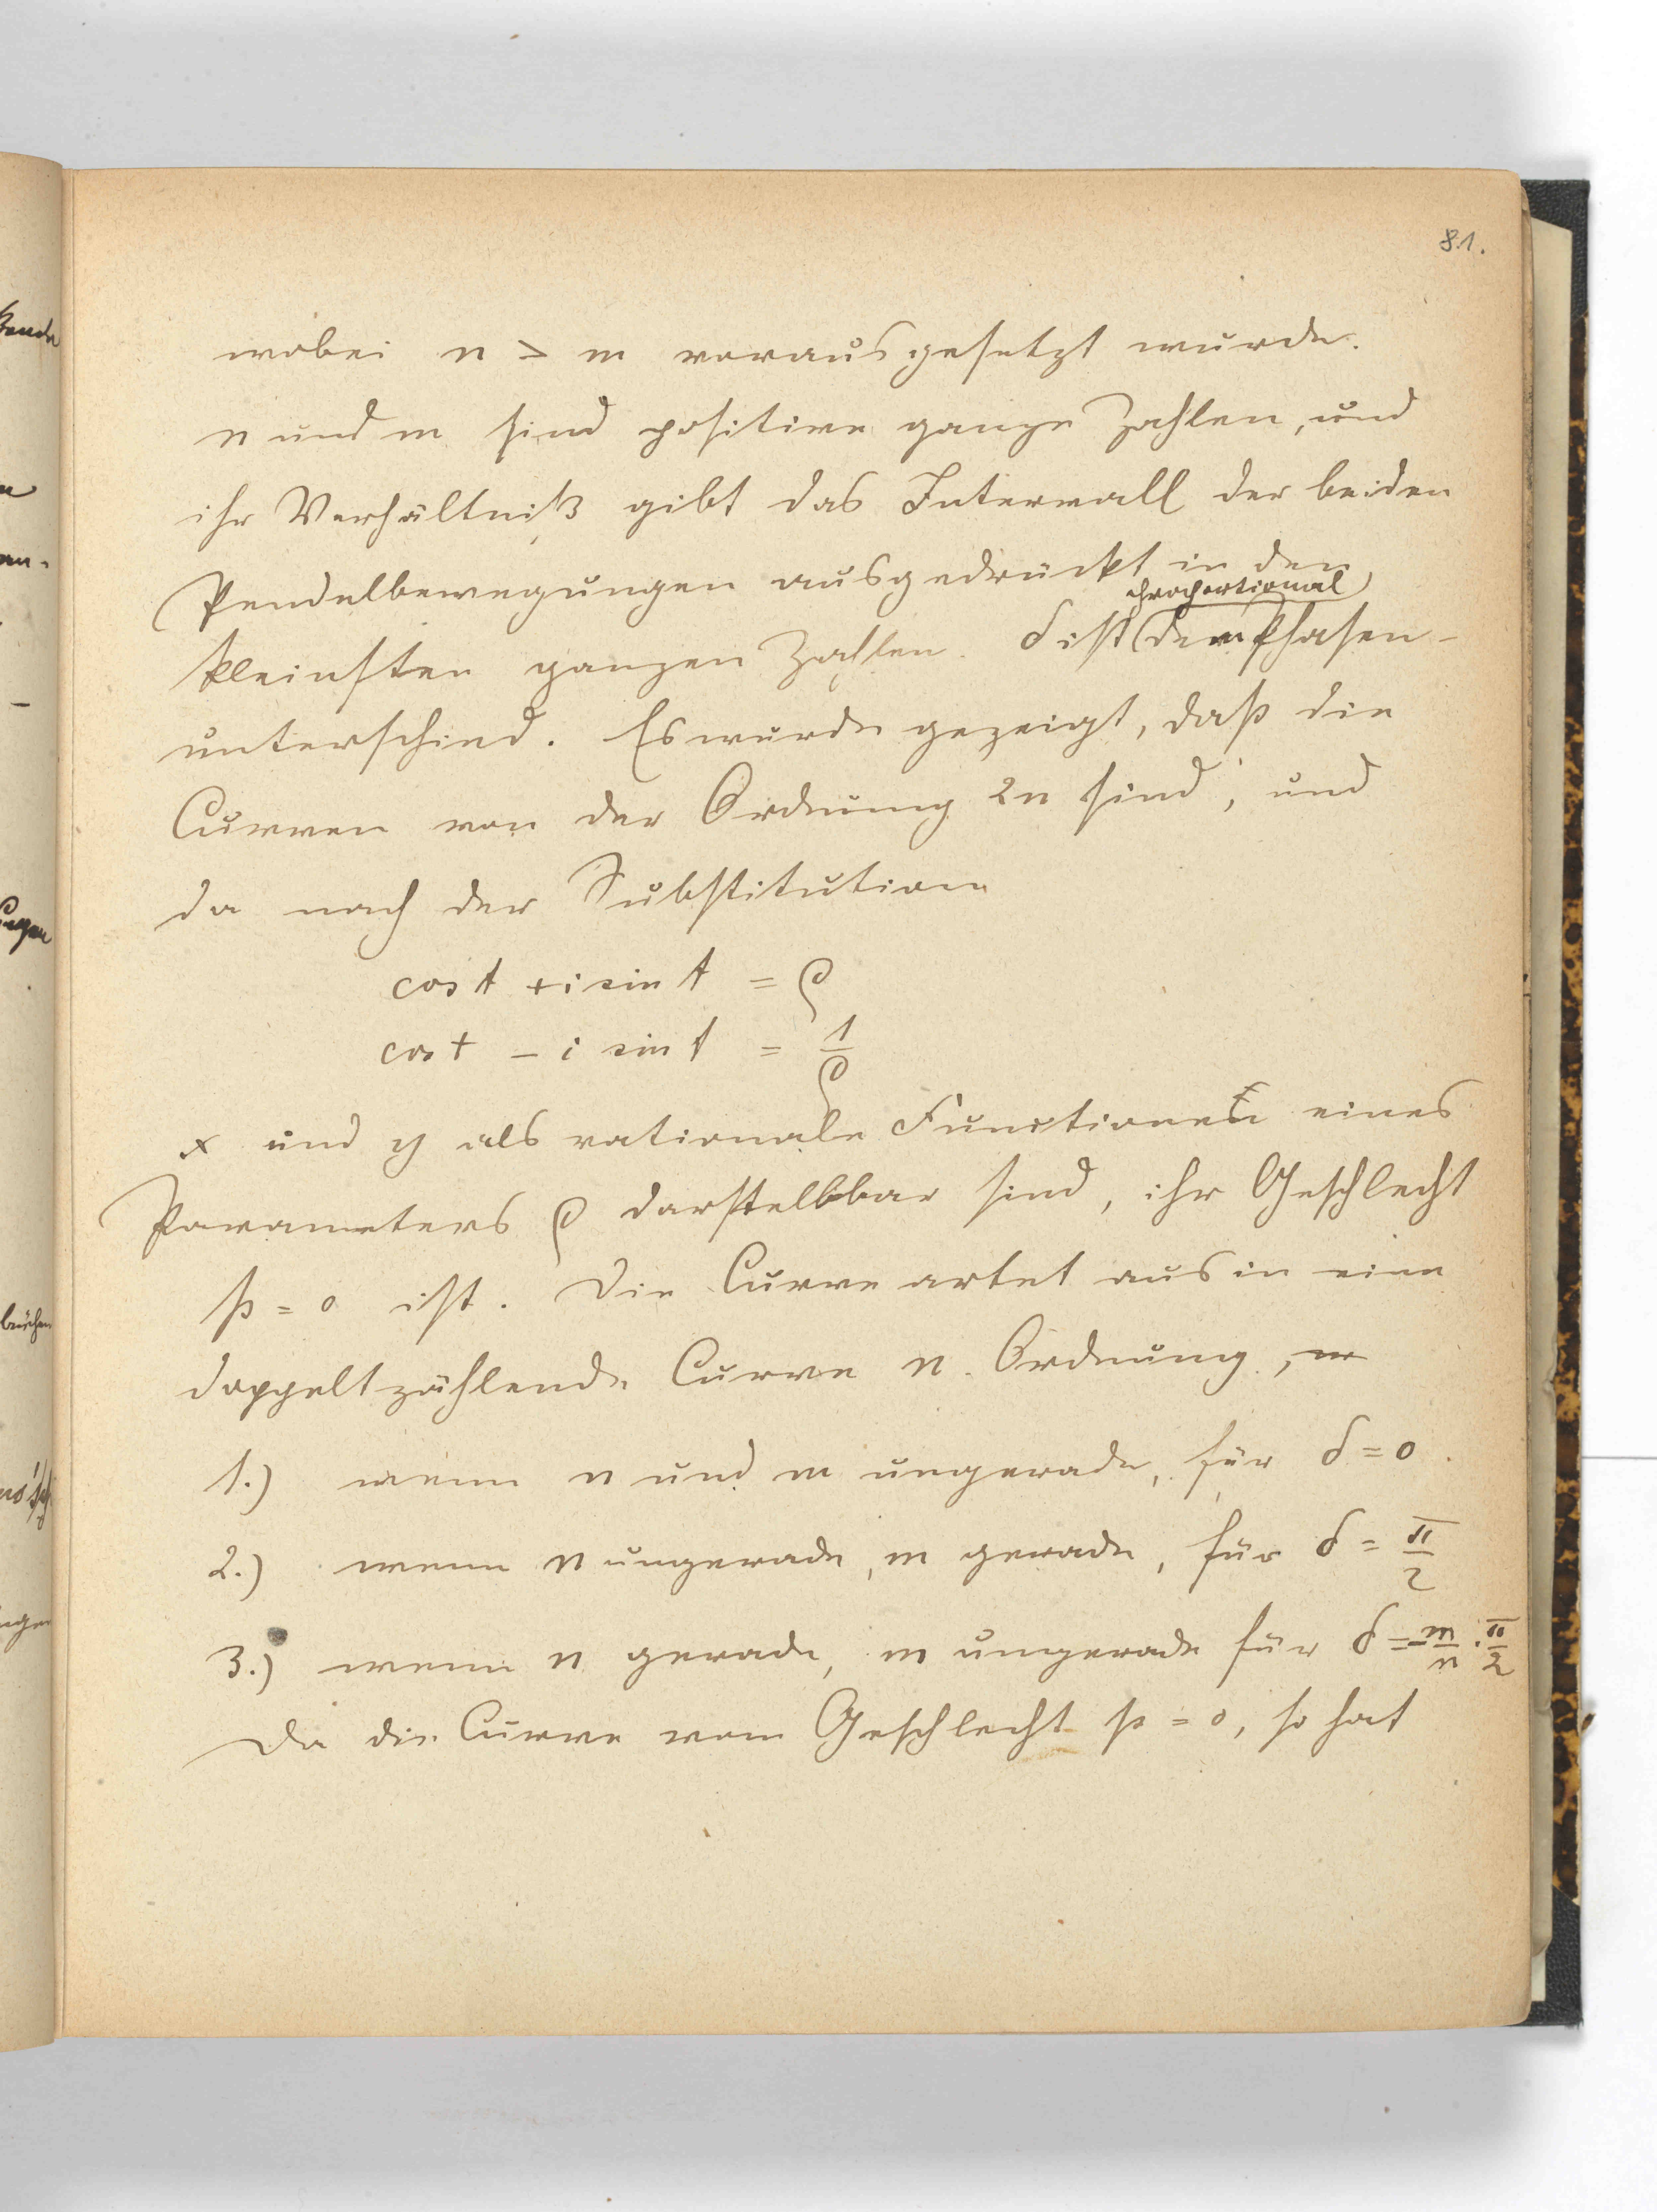 81.
wobei n > m vorausgesetzt wurde.
n und m sind positive ganze Zahlen, und
ihr Verhältniß gibt das Intervall der beiden
Pendelbewegungen ausgedrückt in den
kleinsten ganzen Zahlen. δ ist proportional dem Phasen-
unterschied. Es wurde gezeigt, daß die
Curven von der Ordnung 2n sind, und
da nach der Substitution
cos t + i sin t = ρ
cos t − i sin t = 1/ρ
x und y als rationale Functionen eines
Parameters ρ darstellbar sind, ihr Geschlecht
p = 0 ist. Die Curve artet aus in eine
doppelt zählende Curve n. Ordnung,
1.) wenn n und m ungerade, für δ = 0.
2.) wenn n ungerade, m gerade, für δ = π/2
3.) wenn n gerade, m ungerade für δ = m/n · π/2
Da die Curve vom Geschlecht p = 0, so hat